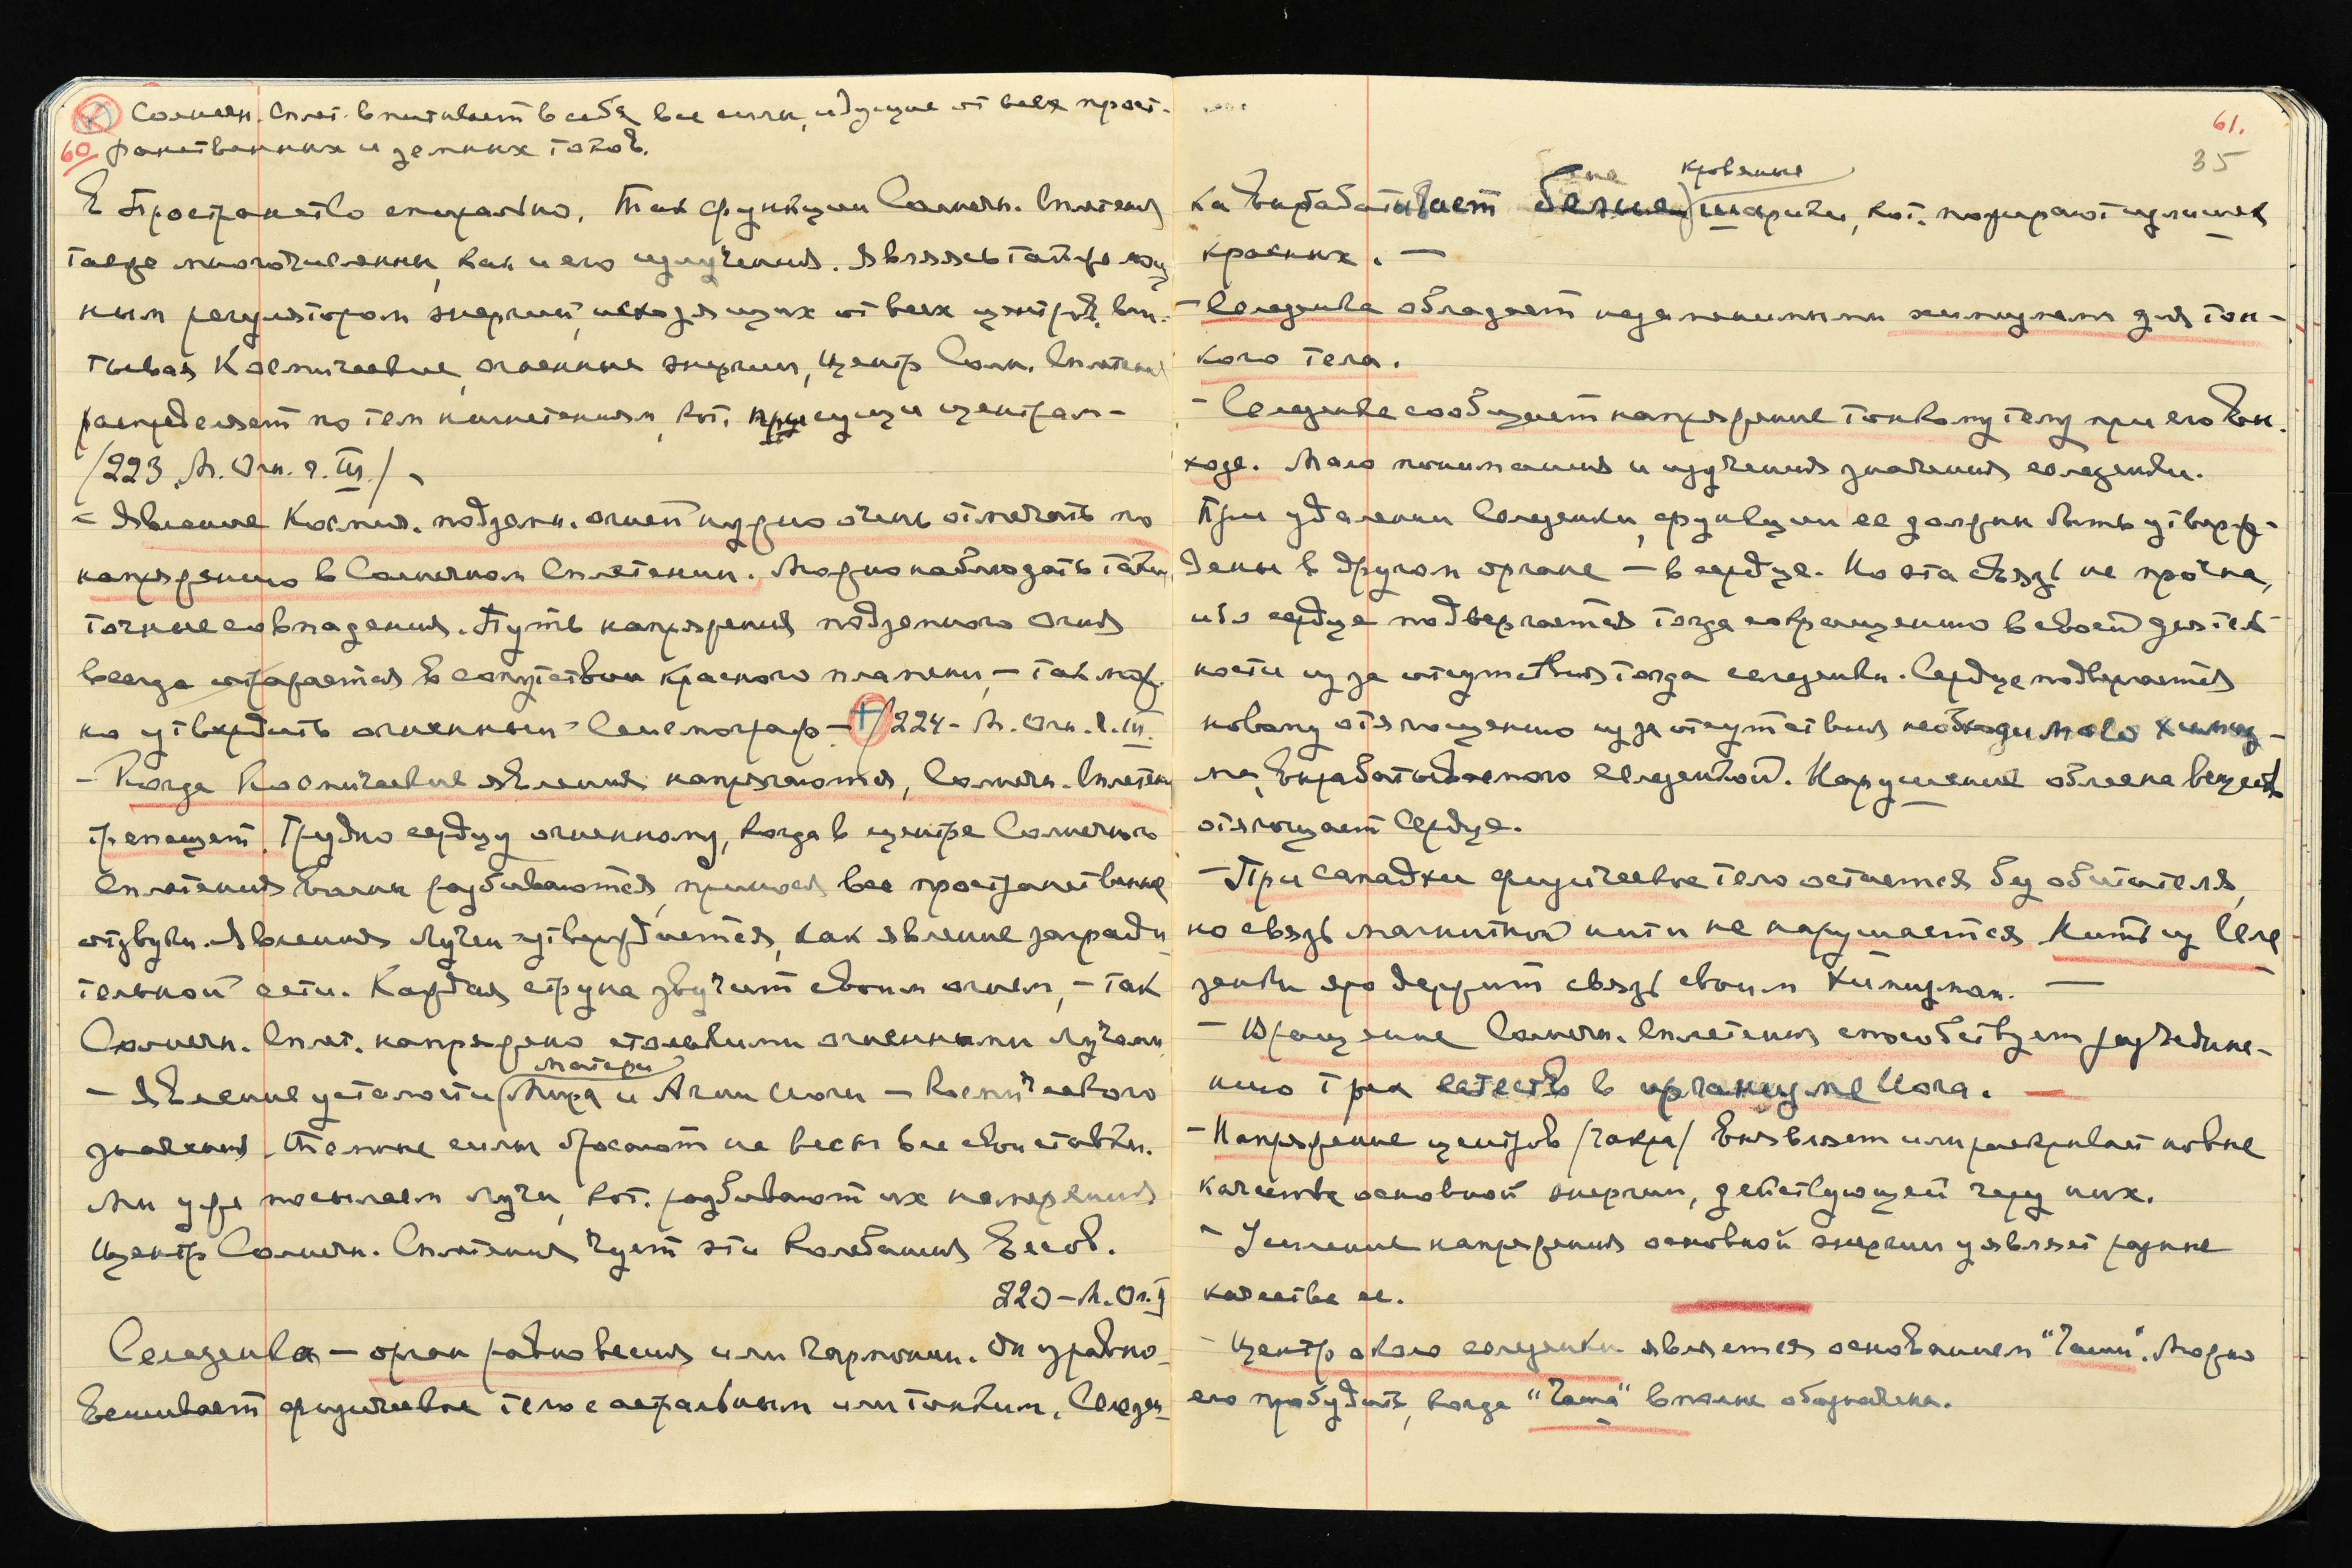 Солнечн. Сплет. впитывает в себя все силы, идущие от всех прост-
60 ранственных и земных токов.
в Пространство спирально. Так функции Солнечн. Сплетения
также многочисленны, как и его излучения. Являясь таким мощ
ным регулятором энергий, исходящих от всех центров, впи-
тывая Космические, огненные энергии, Центр Солн. Сплетения
распределяет по тем нагнетениям, кот. присущи центрам –
/223, М. Огн. ч. III./
– Явление Космич. подземн. огней нужно очень отмечать по
напряжению в Солнечном Сплетении. Можно наблюдать такие
точные совпадения. Путь напряжения подземного Огня
всегда отражается в сопутствии красного пламени, – так мож
но утвердить огненный Сейсмограф – + /224 – М. Огн. ч. III.
– Когда Космические явления напрягаются, Солнечн. Сплетение
трепещет. Трудно сердцу огненному, когда в центре Солнечного
Сплетения волны разбиваются, принося все пространственные
отзвуки. Явления лучей утверждается, как явление загради
тельной сети. Каждая струна звучит своим огнем, – так
Солнечн. Сплет. напряжено столькими огненными лучами
– Явление усталости (Матери Мира и Агни Йоги – космического
значения. Темные силы бросают на весы все свои ставки.
Мы уже посылаем лучи, кот. разбивают их намерения
Центр Солнечн. Сплетения чует эти колебания Весов.
220 – М. Ог. I
Селезенка – орган равновесия или гармонии. Он уравно-
вешивает физическое тело с астральным или тонким. Селезен-
61.
35
ка вырабатывает белые кровяные шарики, кот. пожирают излишек
красных. –
– Селезенка обладает незаменимым химизмом для тон-
кого тела.
– Селезенка сообщает напряжение тонкому телу при его вы-
ходе. Мало понимания и изучения значения селезенки.
При удалении Селезенки, функции ее должны быть утверж-
дены в другом органе – в сердце. Но эта связь не прочна,
ибо сердце подвергается тогда сокращению в своей деятель
ности из за отсутствия тогда селезенки. Сердце подвергается
новому отягощению из за отсутствия необходимого химиз-
ма, вырабатываемого Селезенкой. Нарушение обмена веществ
отягощает Сердце.
– При Самадхи физическое тело остается без обитателя,
но связь магнитной нити не нарушается. Нить из Селе
зенки яро держит связь своим химизмом. –
– Вращение Солнечн. Сплетения способствует разъедине-
нию трех естеств в организме Йога. –
– Напряжение центров /чакра/ выявляет или раскрывает новые
качества основной энергии, действующей через них.
– Усиление напряжения основной энергии уявляет разные
качества ее.
– Центр около селезенки является основанием "Чаши". Можно
его пробудить, когда "Чаша" вполне обозначена.